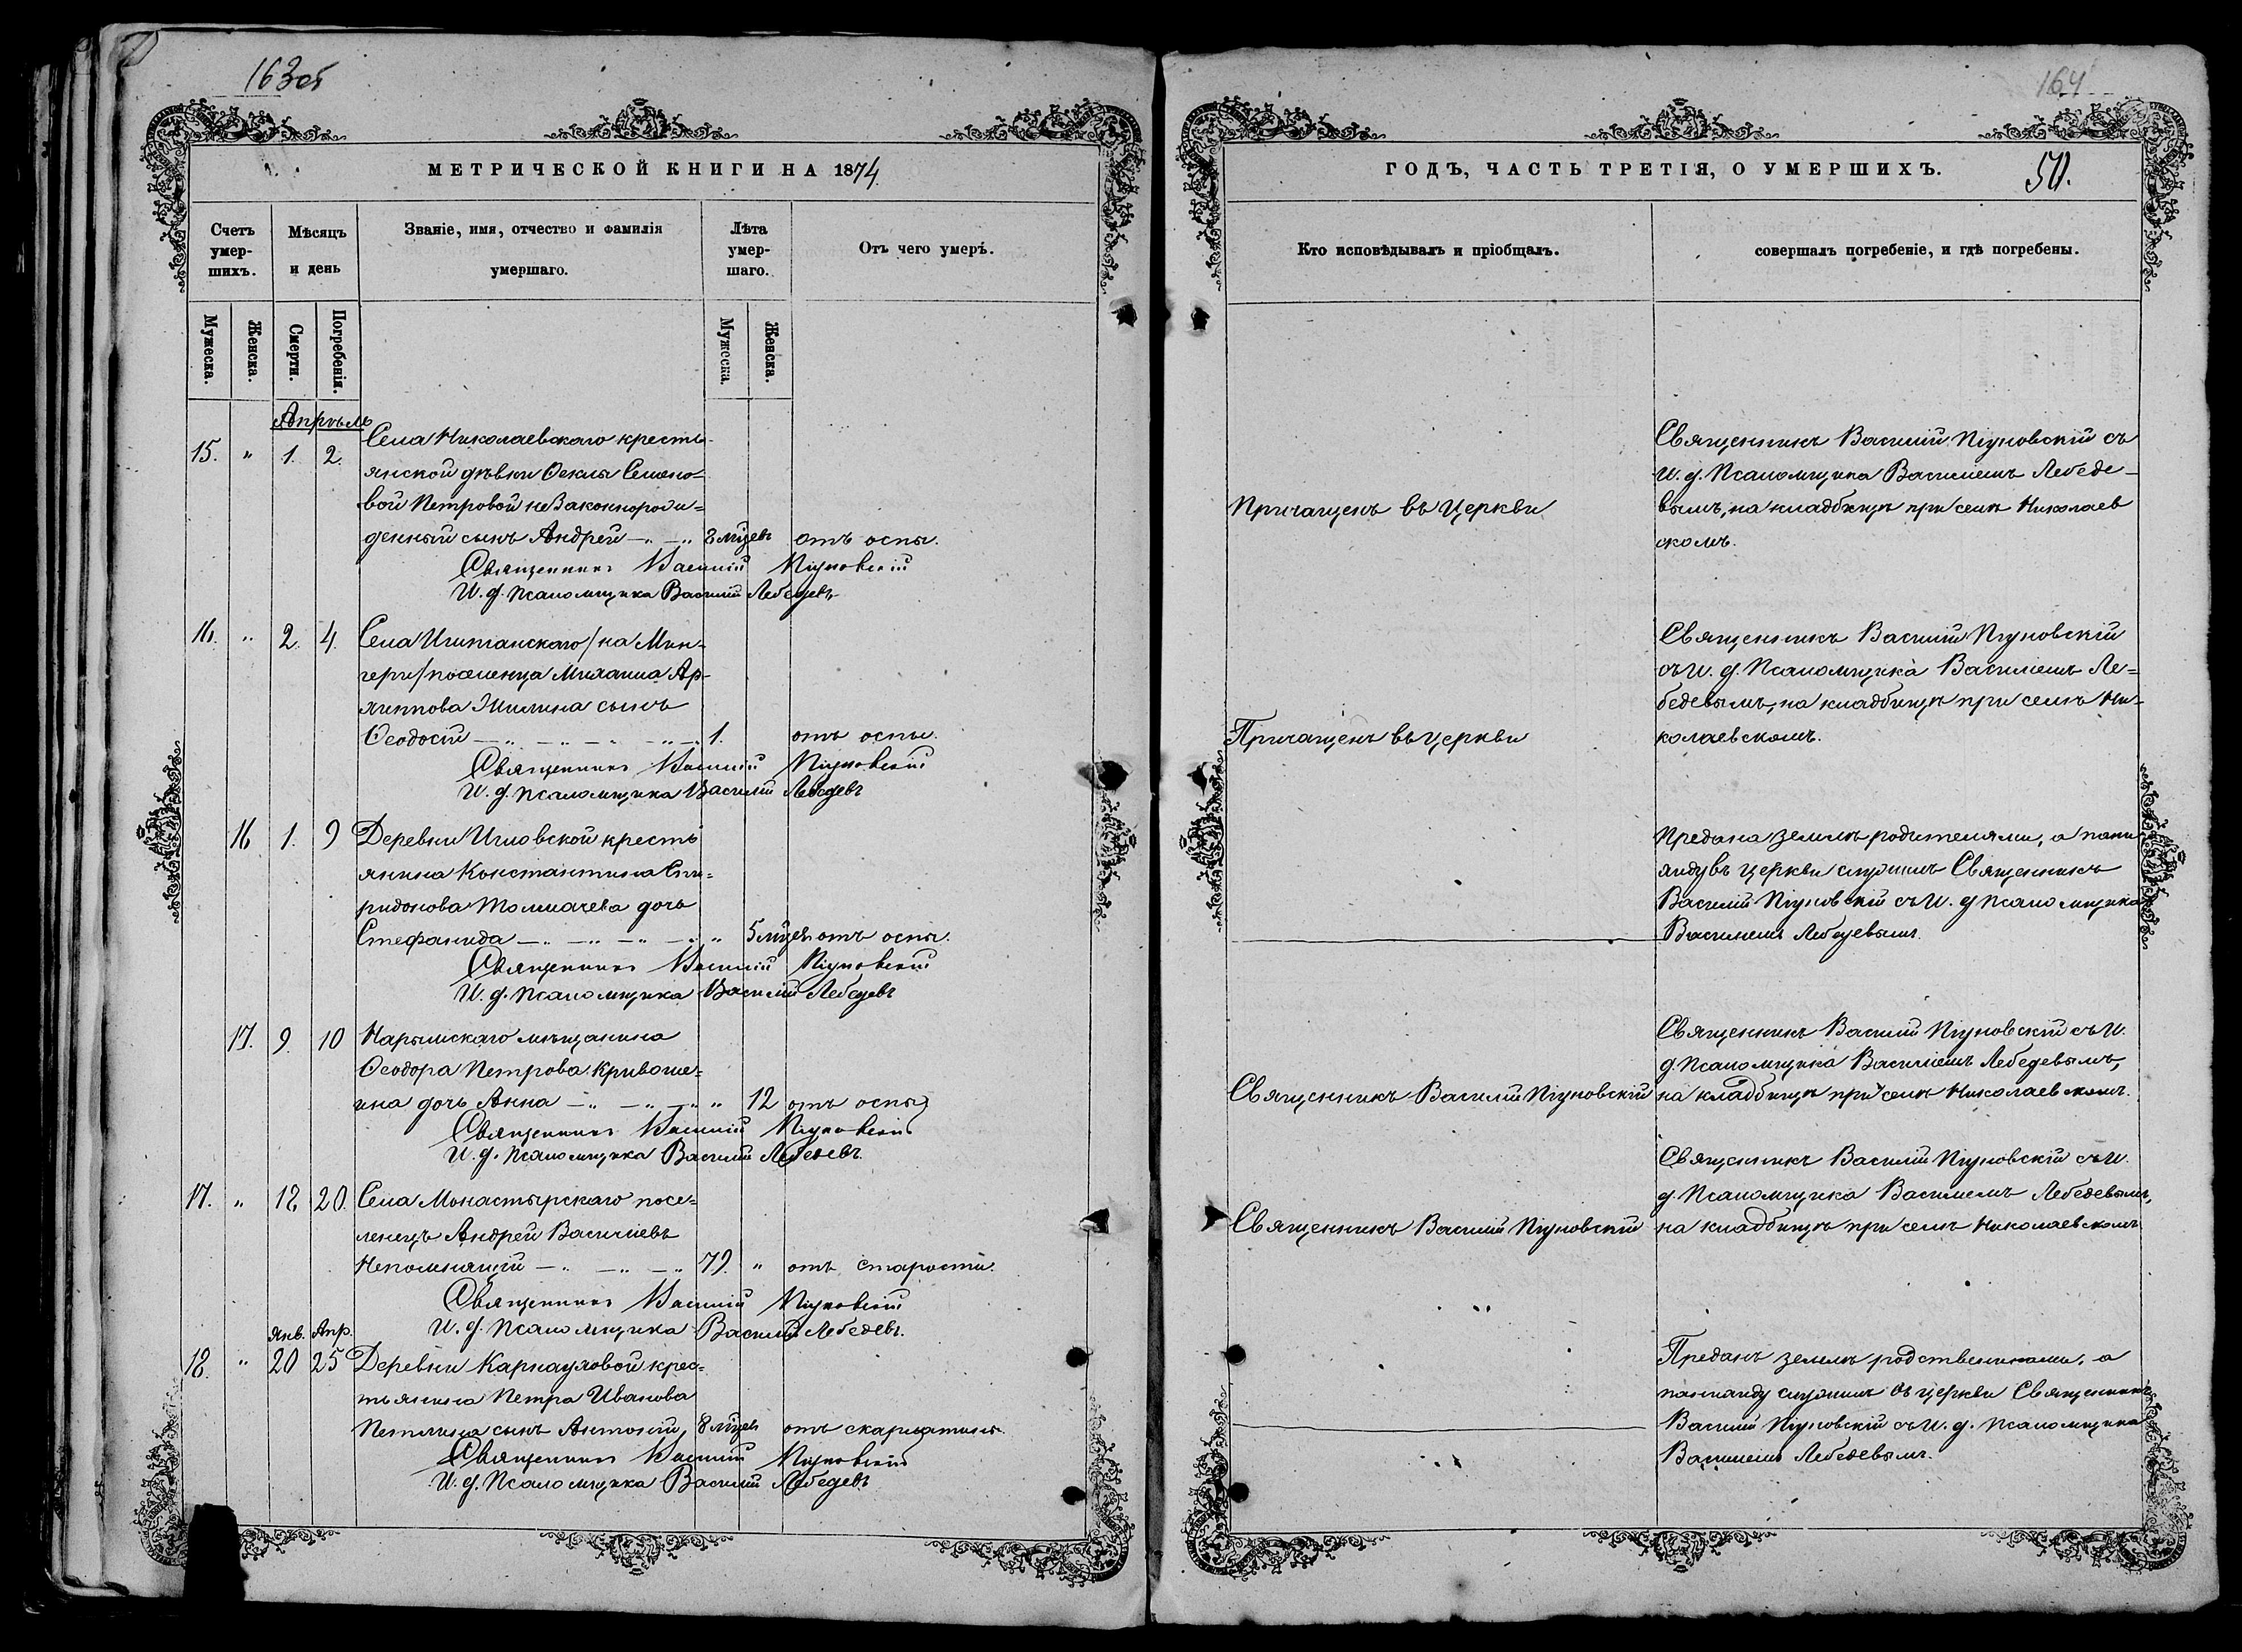 163об
164
МЕТРИЧЕСКОЙ КНИГИ НА 1874
Счетъ умер-шихъ.
Мѣсяцъ и день
Званіе, имя, отчество и фамилія умершаго.
Лѣта умер-шаго.
Отъ чего умеръ.
Мужеска.
Женска.
Смерти.
Погребенія.
Мужеска.
Женска.
Апрѣль
15. " 1. 2. Села Николаевскаго кресть-
янской дѣвки Ѳеклы Семено-
вой Петровой незаконнорож-
денный сынъ Андрей мѣсяцев отъ оспы.
Священникъ Василій
И. д. Псаломщика Василій Лебедевъ
16. " 2. 4. Села /на Мин-
гери/ поселенца Михаила Ар-
хиппова сынъ
Ѳеодосій 1. отъ оспы.
Священникъ Василій
И. д. Псаломщика Василій Лебедевъ
16 1. 9 Деревни кресть
янина Константина Спи-
ридонова Толмачева дочь
Стефанида " 5 мѣсяц. отъ оспы.
Священникъ Василій
И. д. Псаломщика Василій Лебедевъ
17. 9. 10 Нарымскаго мѣщанина
Ѳеодора Петрова Кривоше-
ина дочь Анна " 12 отъ оспы
Священникъ Василій
И. д. Псаломщика Василій Лебедевъ.
17. " 18 20. Села Монастырскаго посе-
ленецъ Андрей Васильевъ
Непомнящій 79. " отъ старости.
Священникъ Василій
И. д. Псаломщика Василій Лебедевъ.
Янв. Апр.
18. " 20 25 Деревни Карнауховой крес-
тьянина Петра Иванова
Петлина сынъ Антоній, 8 мѣсяцев отъ скарлатины.
Священникъ Василій
И. д. Псаломщика Василій Лебедевъ
ГОДЪ, ЧАСТЬ ТРЕТІЯ, О УМЕРШИХЪ.
50.
Кто исповѣдывалъ и пріобщалъ.
совершалъ погребеніе, и гдѣ погребены.
Священникъ Василій съ
И. д. Псаломщика Василіемъ Лебеде-
Причащенъ въ Церкви
вымъ, на кладбищѣ при селѣ Николаев
скомъ.
Священникъ Василій
съ И. д. Псаломщика Василіемъ Ле-
бедевымъ, на кладбищѣ при селѣ Ни-
Причащенъ въ церкви
колаевскомъ.
Предана землѣ родителями, а пани
хиду въ церкви служилъ Священникъ
Василій съ И. д. Псаломщика
Василіемъ Лебедевымъ.
Священникъ Василій съ И.
д. Псаломщика Василіемъ Лебедевымъ,
Священникъ Василій
на кладбищѣ при селѣ Николаевскомъ.
Священникъ Василій съ И.
д. Псаломщика Василіемъ Лебедевымъ,
Священникъ Василій
на кладбищѣ при селѣ Николаевскомъ
Преданъ землѣ родственниками, а
панихиду служилъ въ церкви Священникъ
Василій съ И. д. Псаломщика
Василіемъ Лебедевымъ.